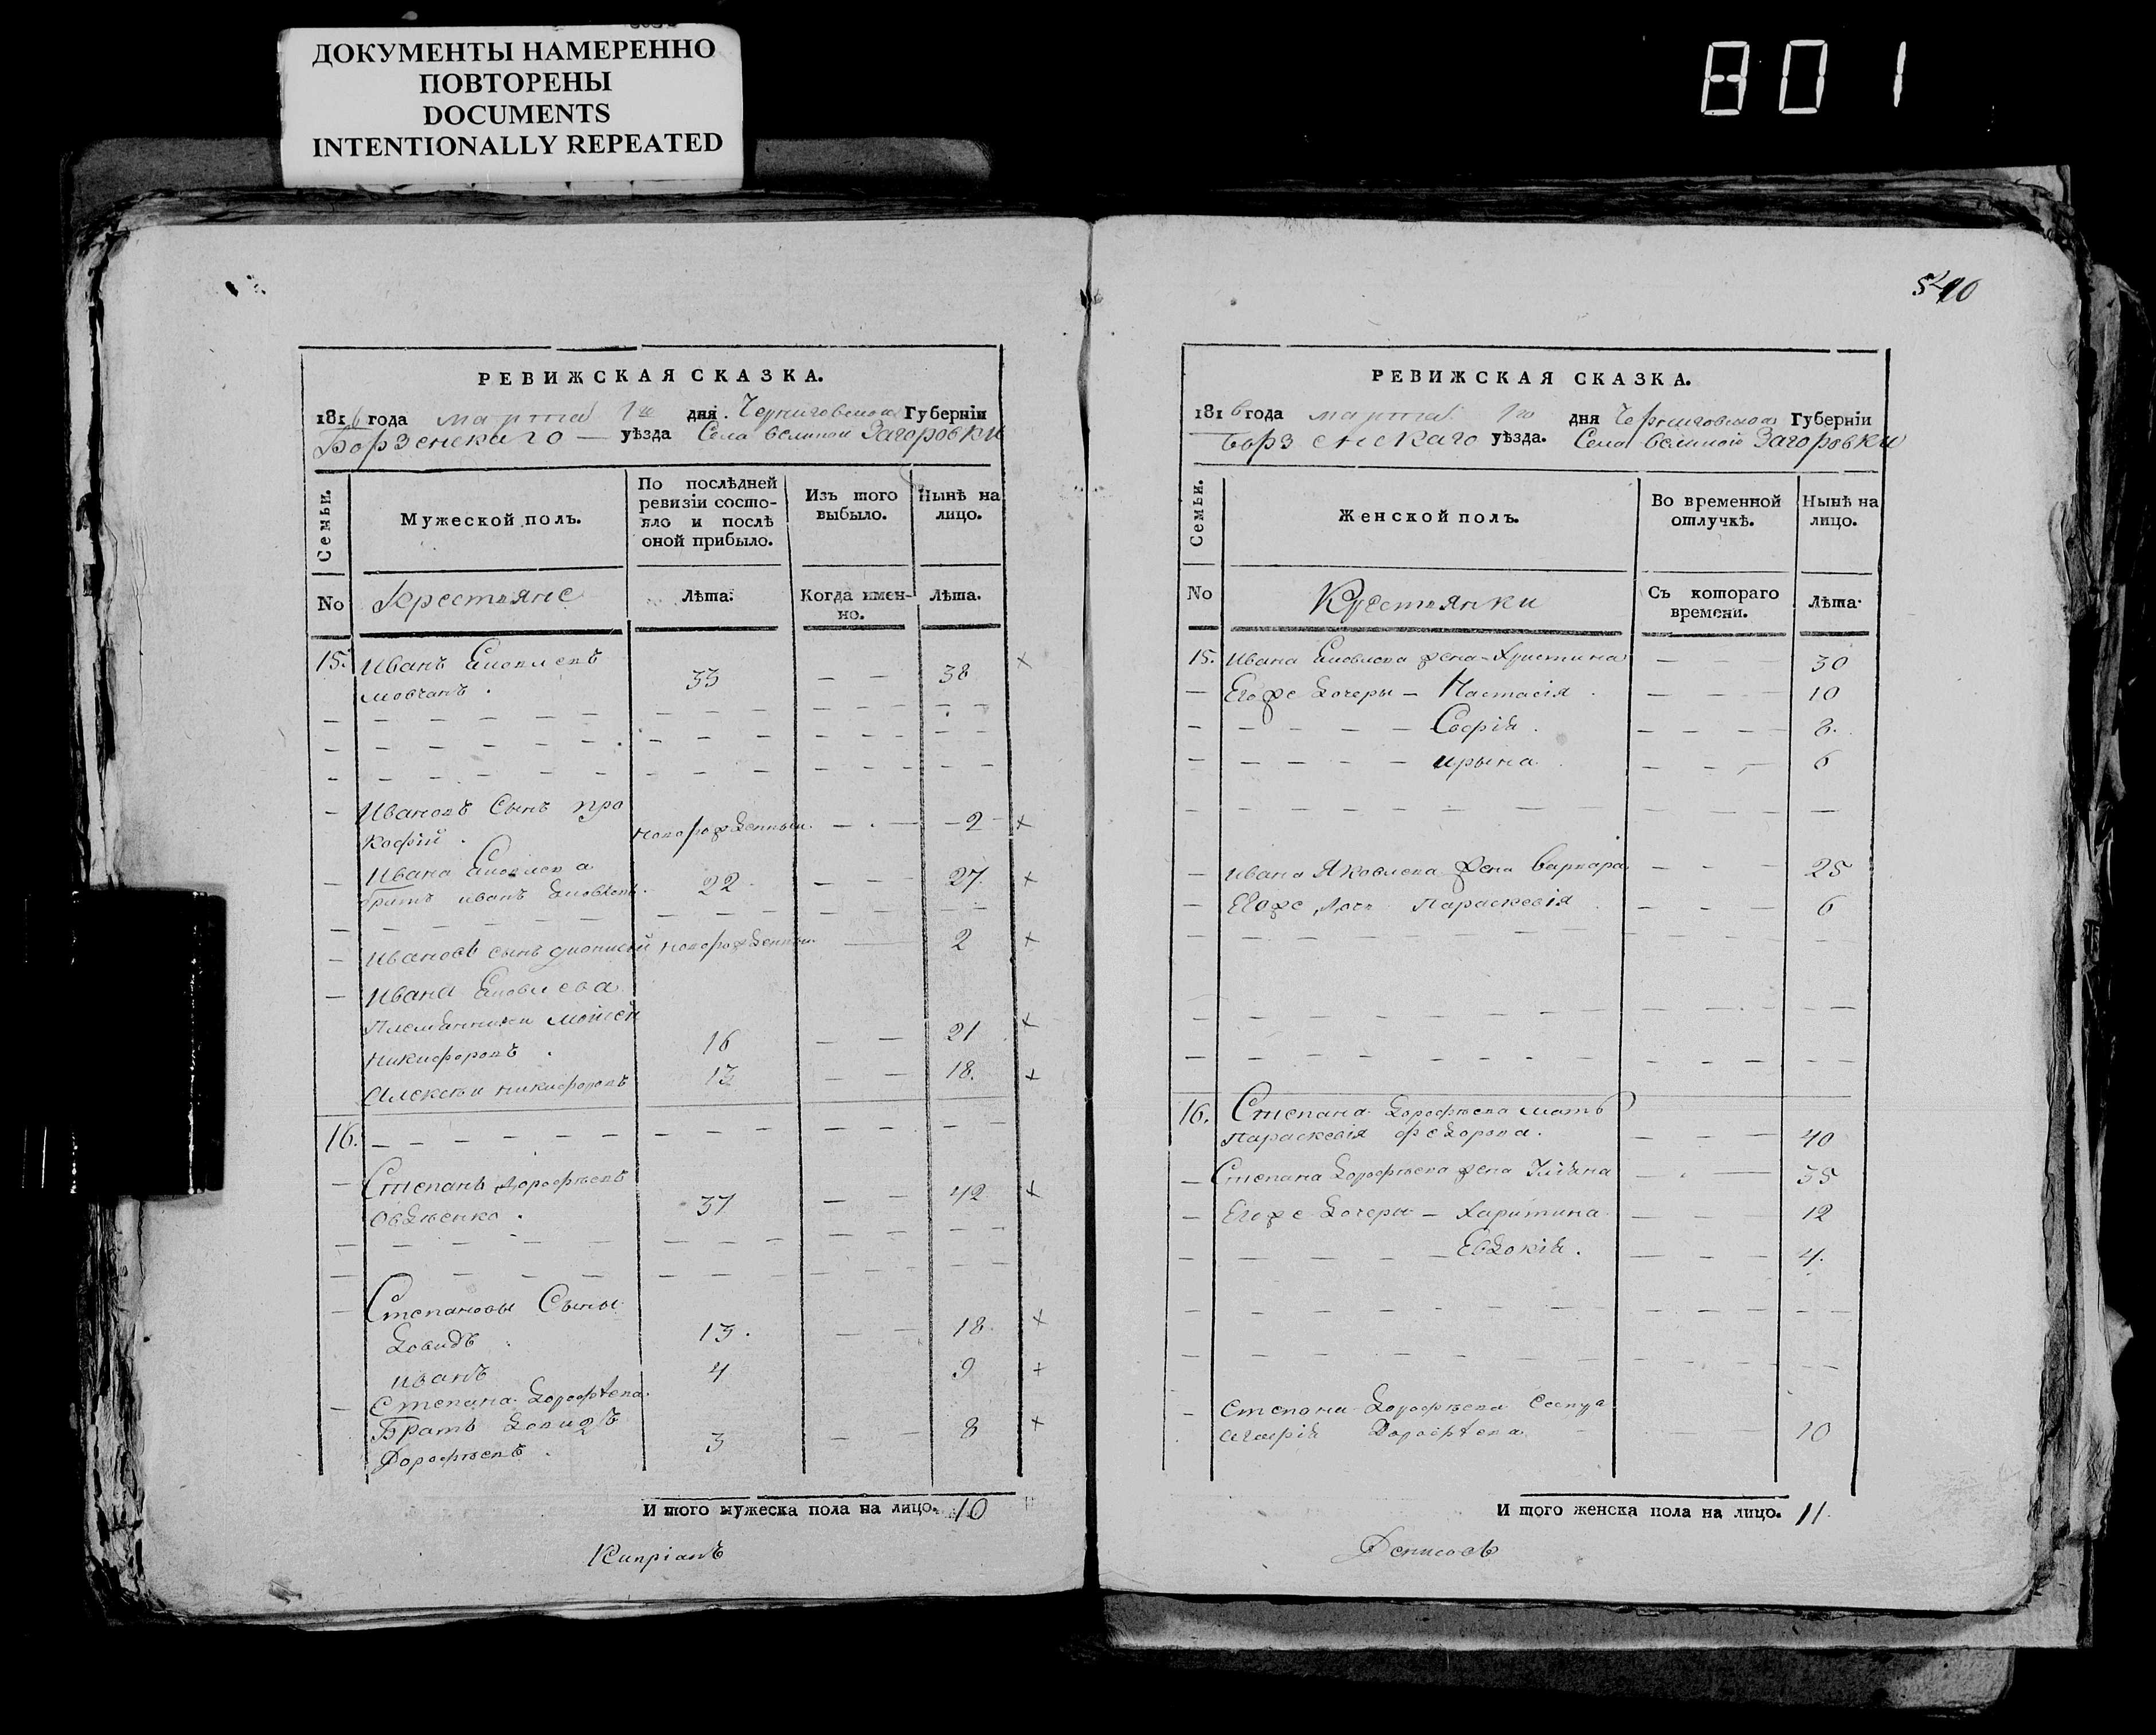 ДОКУМЕНТЫ НАМЕРЕННО
ПОВТОРЕНЫ
DOCUMENTS
INTENTIONALLY REPEATED
801
РЕВИЖСКАЯ СКАЗКА.
1816 года марта 1го дня Черниговской Губерніи
Борзенскаго уѣзда Села великой Загоровки
Семьи.
Мужеской полъ.
По послѣдней
ревизіи состо-
яло и послѣ
оной прибыло.
Изъ того
выбыло.
Нынѣ на
лицо.
No Крестьяне Лѣта. Когда имен-
но. Лѣта.
15. Иванъ Яковлевъ
Мовчанъ. 33 — — 38 ×
— Ивановъ Сынъ про
кофій. новорожденный. — — 2 ×
— Ивана Яковлева
братъ иванъ Яковлевъ. 22 — — 27. ×
— Ивановъ сынъ дионисий новорожденный. — 2 ×
— Ивана Яковлева
Племянники Мойсей
Никифоровъ. 16 — — 21 ×
Алексѣй никифоровъ 13 — — 18. ×
16.
— Степанъ Дорофѣевъ
Овдѣенко. 37 — — 42 ×
— Степановы Сыны
Давидъ 13. — — 18. ×
иванъ 4 9 ×
— Степана Дорофѣева
Братъ Давидъ
Дорофѣевъ. 3 — — 8 ×
И того мужеска пола на лицо. 10
Кипріанъ
90
РЕВИЖСКАЯ СКАЗКА.
1816 года марта 1го дня Черниговской Губерніи
Борзенскаго уѣзда. Села великой Загоровки
Семьи.
Женской полъ.
Во временной
отлучкѣ.
Нынѣ на
лицо.
No Крестьянки Съ котораго
времени. Лѣта.
15. Ивана Яковлева жена Христина — — — 30
— Егоже дочеры — Настасія. — — — 10
— Софія. — — — 8.
— ирына. — — — 6
— Ивана Яковлева жена варвара — — — 25
— Егоже дочь Параскевія — — — 6
16. Степана Дорофѣева мать
Параскевія федорова. — — — 40
— Степана Дорофѣева жена Уліяна — — 35
— Егоже дочеры — Харитина — — — 12
— Евдокія. — — — 4.
— Степана Дорофѣева Сестра
Дорофѣева 10
И того женска пола на лицо. 11.
Денисовъ